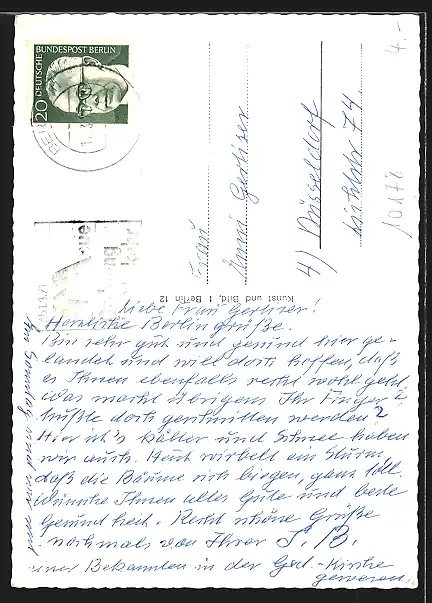 DEUTSCHE BUNDESPOST BERLIN
20
4.-
10178
Frau
Gerliser
4) Düsseldorf
74
Kunst und Bild, 1 Berlin 12
Liebe Frau Gerliser!
Herzliche Berlingrüße.
Bin sehr gut und gesund hier ge-
landet und will doch hoffen, daß
es Ihnen ebenfalls recht wohl geht.
Was macht übrigens Ihr Finger?
Mußte doch geschnitten werden?
Hier ist's kälter und Schnee haben
wir auch. Heut wirbelt ein Sturm,
daß die Bäume sich biegen, ganz toll.
Wünsche Ihnen alles Gute und beste
Gesundheit. Recht schöne Grüße
nochmals von Ihrer J. B.
Am Sonntag sind wir mit
einer Bekannten in der Ged.-Kirche
gewesen.